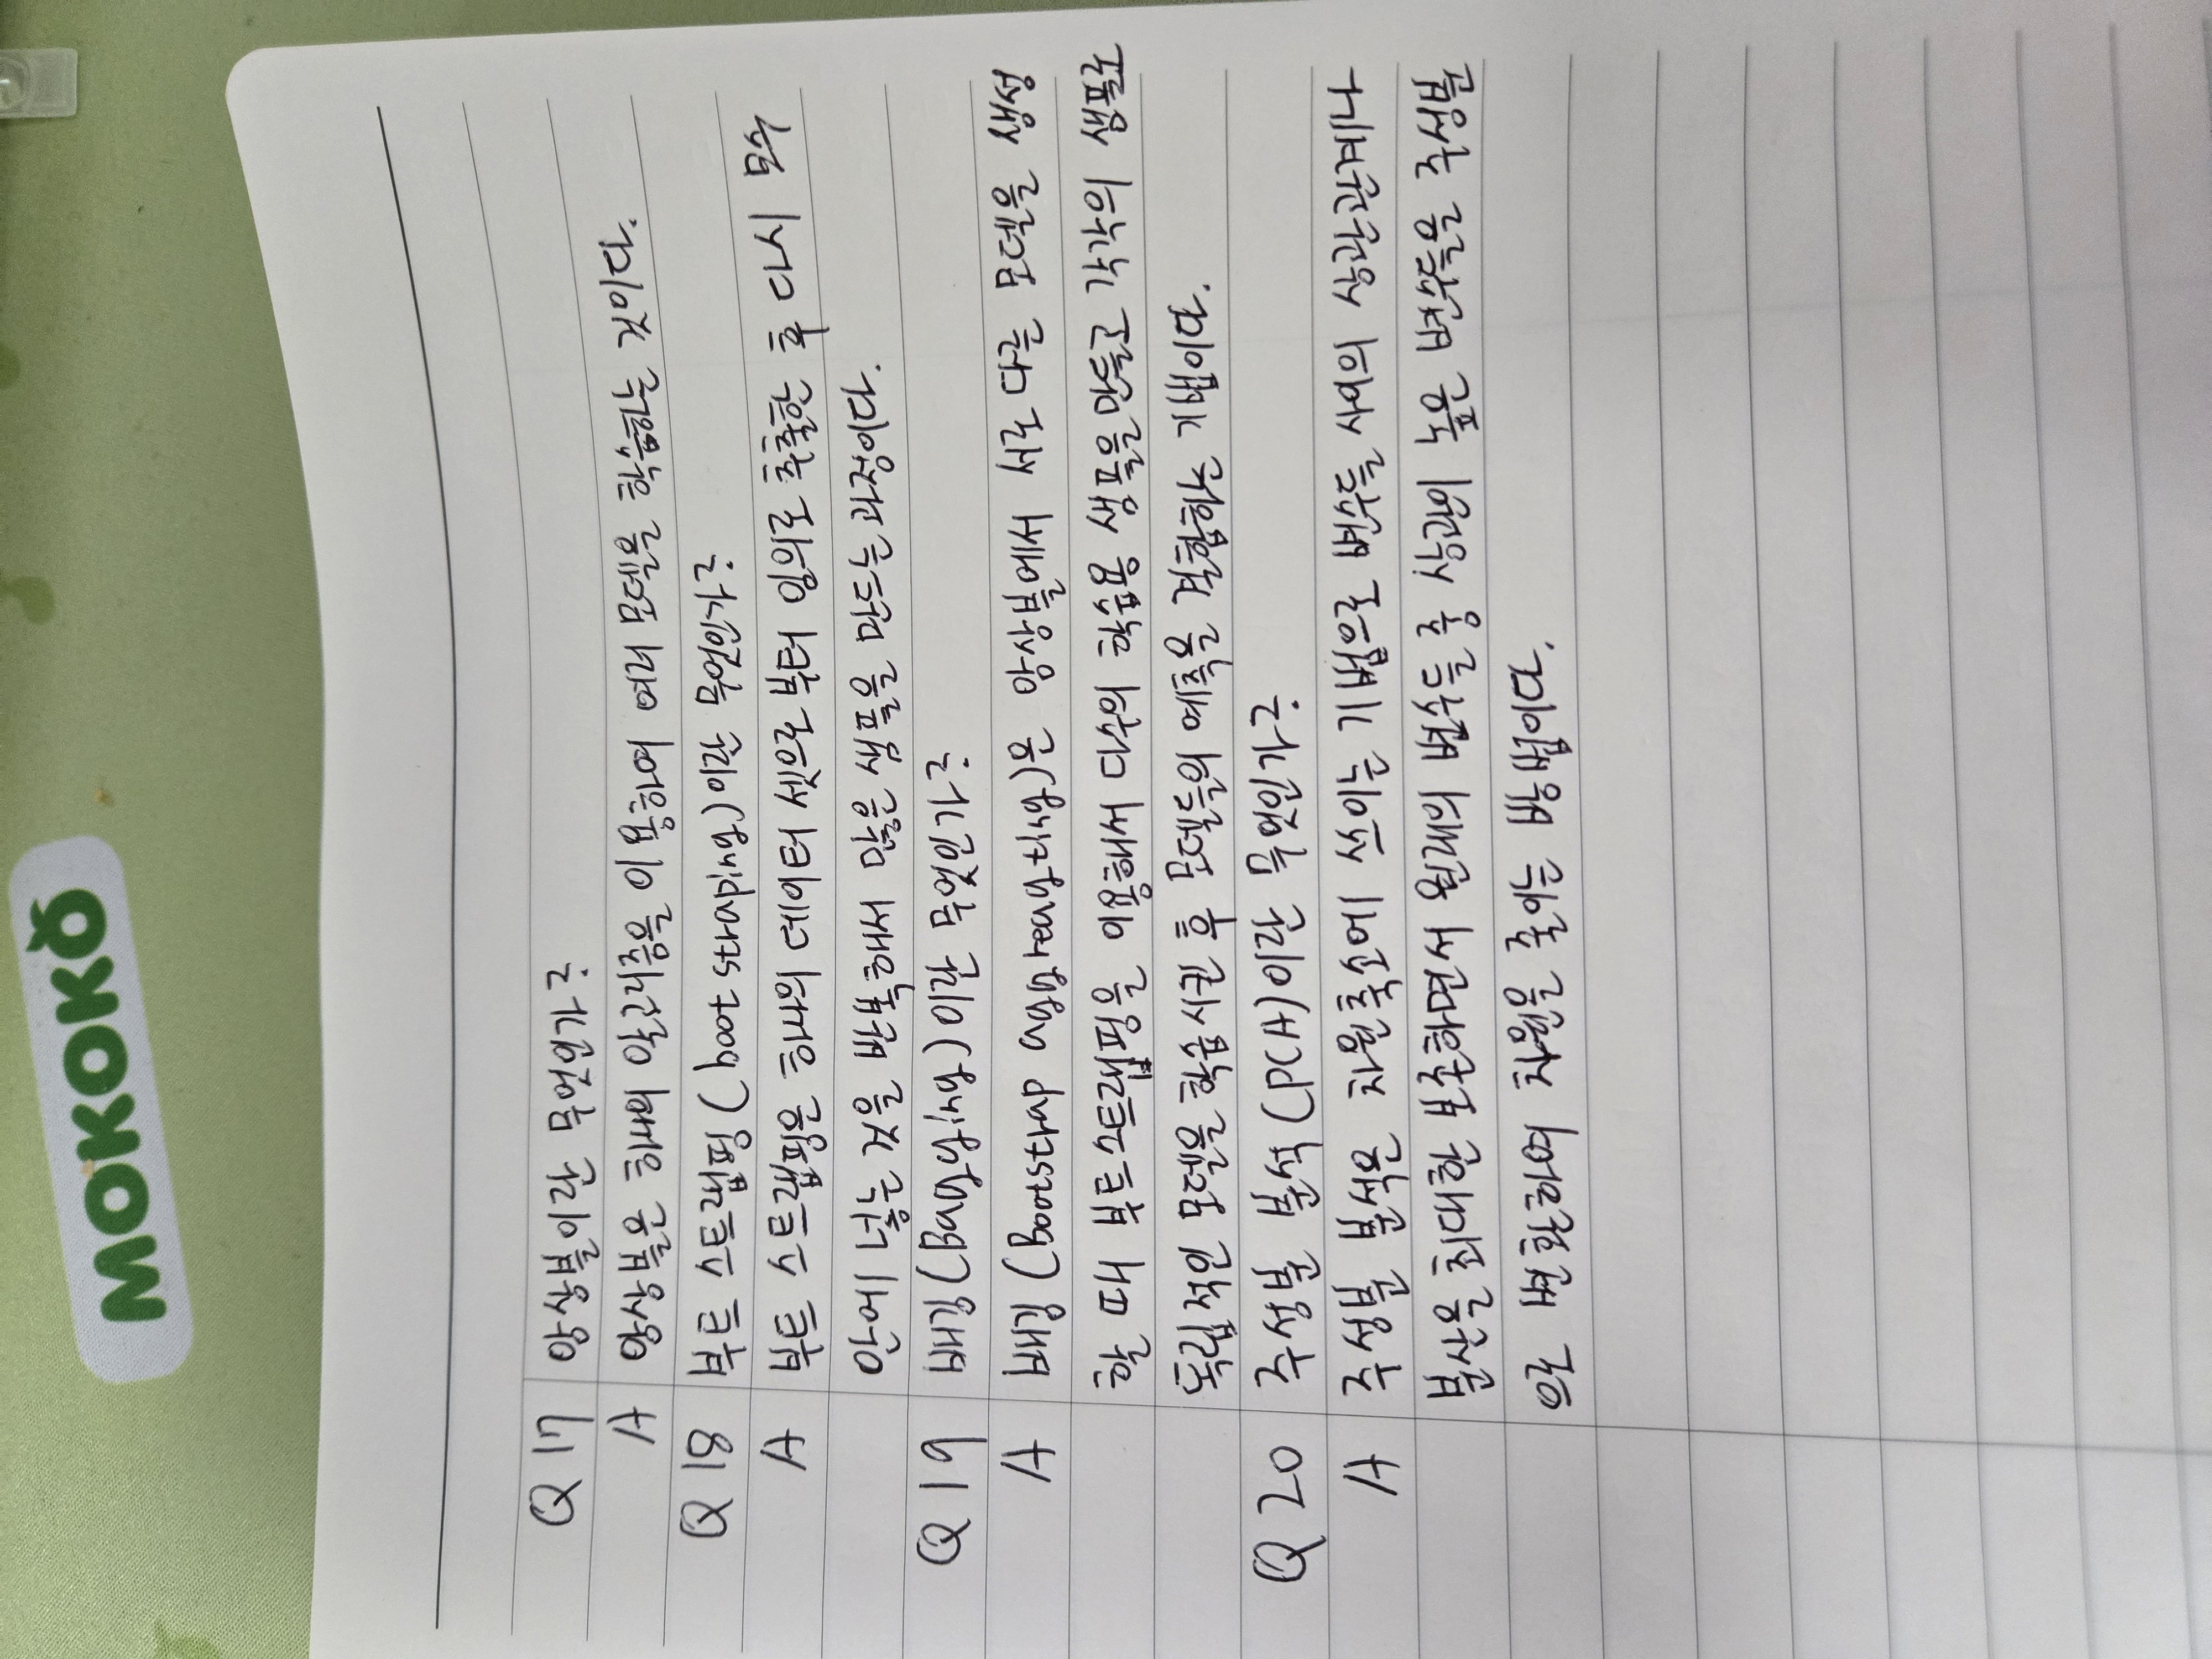 MOKOKO
Q 17 앙상블이란 무엇인가?
A 앙상블은 하나의 알고리즘을 이용하여 여러 모델을 학습하는 것이다.
Q 18 부트 스트랩핑(boot straping)이란 무엇인가?
A 부트 스트랩핑은 하나의 데이터 셋으로 부터 임의로 추출한 후 다시 모수
안에 넣는 것을 반복해서 많은 샘플을 만드는 과정이다.
Q 19 배깅(Bagging)이란 무엇인가?
A 배깅 (Bootstrap aggreagting)은 앙상블에서 서로 다른 모델을 생성
할 때 부트스트랩핑을 이용해서 다수의 학습용 샘플을 만들고 각각의 샘플로
독립적인 모델을 학습시킨 후 모델들의 예측을 결합하는 기법이다.
Q 20 주성분 분석(PCA)이란 무엇인가?
A 주성분 분석은 차원축소에 쓰이는 기법으로 변수들 사이의 상관관계나
분산을 최대한 보존하면서 원래의 변수들 중 상관이 높은 변수들을 주성분
으로 변환하여 차원을 줄이는 방법이다.